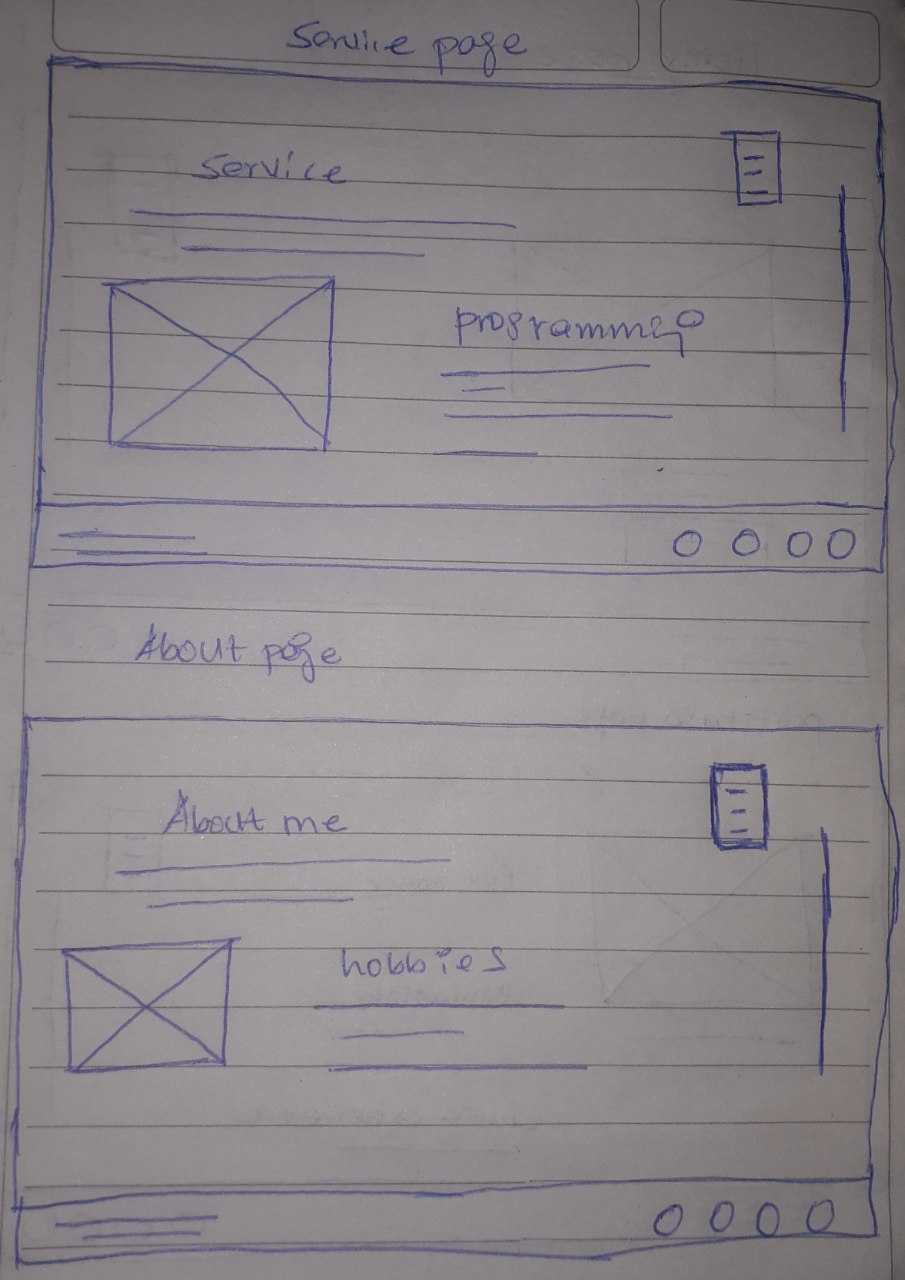 Service page
Service
programmeo
About page
About me
hobbies